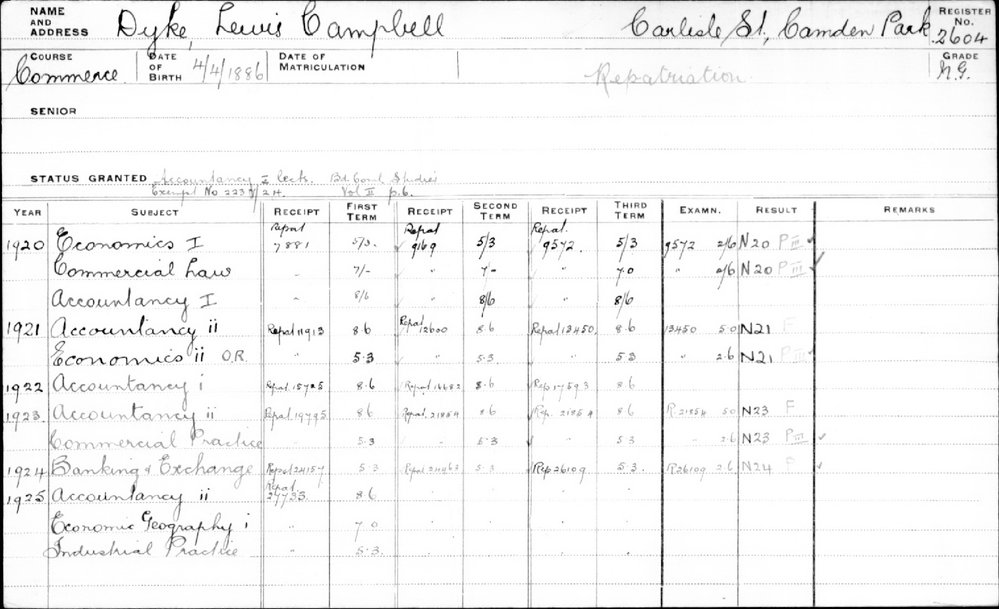 NAME AND ADDRESS Dyke, Lewis Campbell Carlisle St., Camden Park REGISTER No. 2604
COURSE Commerce DATE OF BIRTH 4/4/1886 DATE OF MATRICULATION Repatriation GRADE N.G.
SENIOR
STATUS GRANTED Accountancy I Lects. Bd. Coml Studies
Exempt No 223 /24. Vol II p.6.
YEAR SUBJECT RECEIPT FIRST TERM RECEIPT SECOND TERM RECEIPT THIRD TERM EXAMN. RESULT REMARKS
1920 Economics I Repat 7881 5/3. Repat 9169 5/3 Repat. 9572. 5/3 9572 2/6 N20 P III ✓
Commercial Law " 7/- " 7 - " 7.0 " 2/6 N20 P III ✓
Accountancy I " 8/6 " 8/6 " 8/6
1921 Accountancy ii Repat 11913 8.6 Repat 12600 8.6 Repat 13450 8.6 13450 5.0 N21 F
Economics ii O.R. " 5.3 " 5.3 " 5.3 " 2.6 N21 P III ✓
1922 Accountancy i Repat 15725 8.6 Repat 16682 8.6 Rep 17593 8.6
1923 Accountancy ii Repat. 19795 8.6 Repat. 21854 8.6 Rep. 21854 8.6 R. 21854 5.0 N23 F
Commercial Practice " 5.3 " 5.3 " 5.3 " 2.6 N23 P III ✓
1924 Banking & Exchange Repat 24157 5.3 Repat 5.3 Rep 26109 5.3. R26109 2.6 N24 F ✓
1925 Accountancy ii Repat 27733 8.6
Economic Geography i " 7.0
Industrial Practice " 5.3